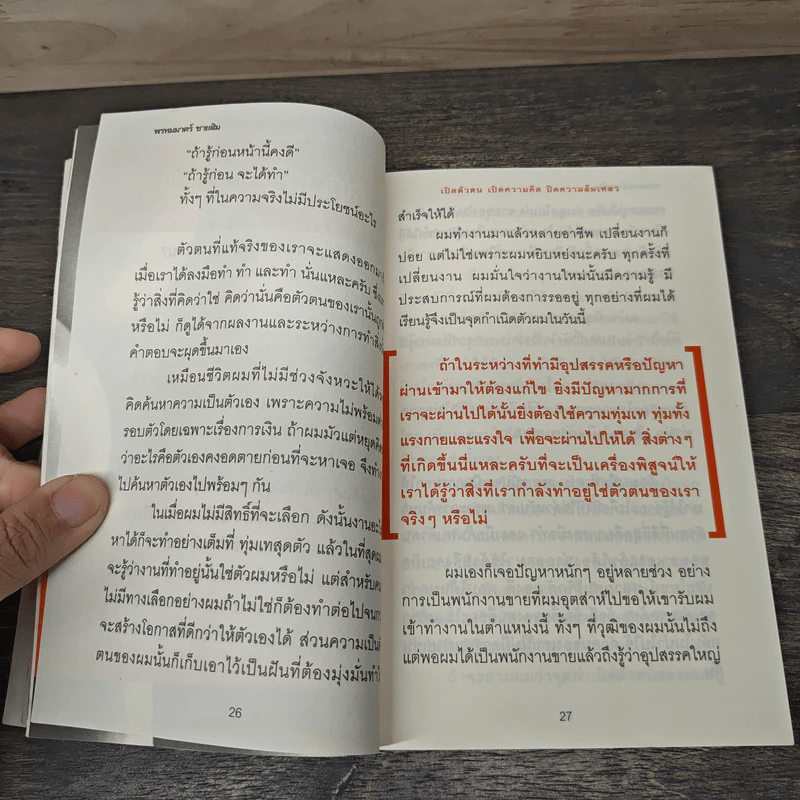 พรหมมาตร์ ชายสิม
“ถ้ารู้ก่อนหน้านี้คงดี”
“ถ้ารู้ก่อน จะได้ทำ”
ทั้งๆ ที่ในความจริงไม่มีประโยชน์อะไร
ตัวตนที่แท้จริงของเราจะแสดงออกมา
เมื่อเราได้ลงมือทำ ทำ และทำ นั่นแหละครับ
รู้ว่าสิ่งที่คิดว่าใช่ คิดว่านั่นคือตัวตนของเรานั้น
หรือไม่ ก็ดูได้จากผลงานและระหว่างการทำ
คำตอบจะผุดขึ้นมาเอง
เหมือนชีวิตผมที่ไม่มีช่วงจังหวะให้ได้
คิดค้นหาความเป็นตัวเอง เพราะความไม่พร้อม
รอบตัวโดยเฉพาะเรื่องการเงิน ถ้าผมมัวแต่หยุดคิด
ว่าอะไรคือตัวเองคงอดตายก่อนที่จะหาเจอ จึงทำ
ไปค้นหาตัวเองไปพร้อมๆ กัน
ในเมื่อผมไม่มีสิทธิ์ที่จะเลือก ดังนั้นงาน
หาได้ก็จะทำอย่างเต็มที่ ทุ่มเทสุดตัว แล้วในที่สุด
จะรู้ว่างานที่ทำอยู่นั้นใช่ตัวผมหรือไม่ แต่สำหรับ
ไม่มีทางเลือกอย่างผมถ้าไม่ใช่ก็ต้องทำต่อไปจน
จะสร้างโอกาสที่ดีกว่าให้ตัวเองได้ ส่วนความเป็น
ตนของผมนั้นก็เก็บเอาไว้เป็นฝันที่ต้องมุ่งมั่น
26
เปิดตัวตน เปิดความคิด ปิดความล้มเหลว
สำเร็จให้ได้
ผมทำงานมาแล้วหลายอาชีพ เปลี่ยนงานก็
บ่อย แต่ไม่ใช่เพราะผมหยิบหย่งนะครับ ทุกครั้งที่
เปลี่ยนงาน ผมมั่นใจว่างานใหม่นั้นมีความรู้ มี
ประสบการณ์ที่ผมต้องการรออยู่ ทุกอย่างที่ผมได้
เรียนรู้จึงเป็นจุดกำเนิดตัวผมในวันนี้
ถ้าในระหว่างที่ทำมีอุปสรรคหรือปัญหา
ผ่านเข้ามาให้ต้องแก้ไข ยิ่งมีปัญหามากการที่
เราจะผ่านไปได้นั้นยิ่งต้องใช้ความทุ่มเท ทุ่มทั้ง
แรงกายและแรงใจ เพื่อจะผ่านไปให้ได้ สิ่งต่างๆ
ที่เกิดขึ้นนี่แหละครับที่จะเป็นเครื่องพิสูจน์ให้
เราได้รู้ว่าสิ่งที่เรากำลังทำอยู่ใช่ตัวตนของเรา
จริงๆ หรือไม่
ผมเองก็เจอปัญหาหนักๆ อยู่หลายช่วง อย่าง
การเป็นพนักงานขายที่ผมอุตส่าห์ไปขอให้เขารับผม
เข้าทำงานในตำแหน่งนี้ ทั้งๆ ที่วุฒิของผมนั้นไม่ถึง
แต่พอผมได้เป็นพนักงานขายแล้วถึงรู้ว่าอุปสรรคใหญ่
27